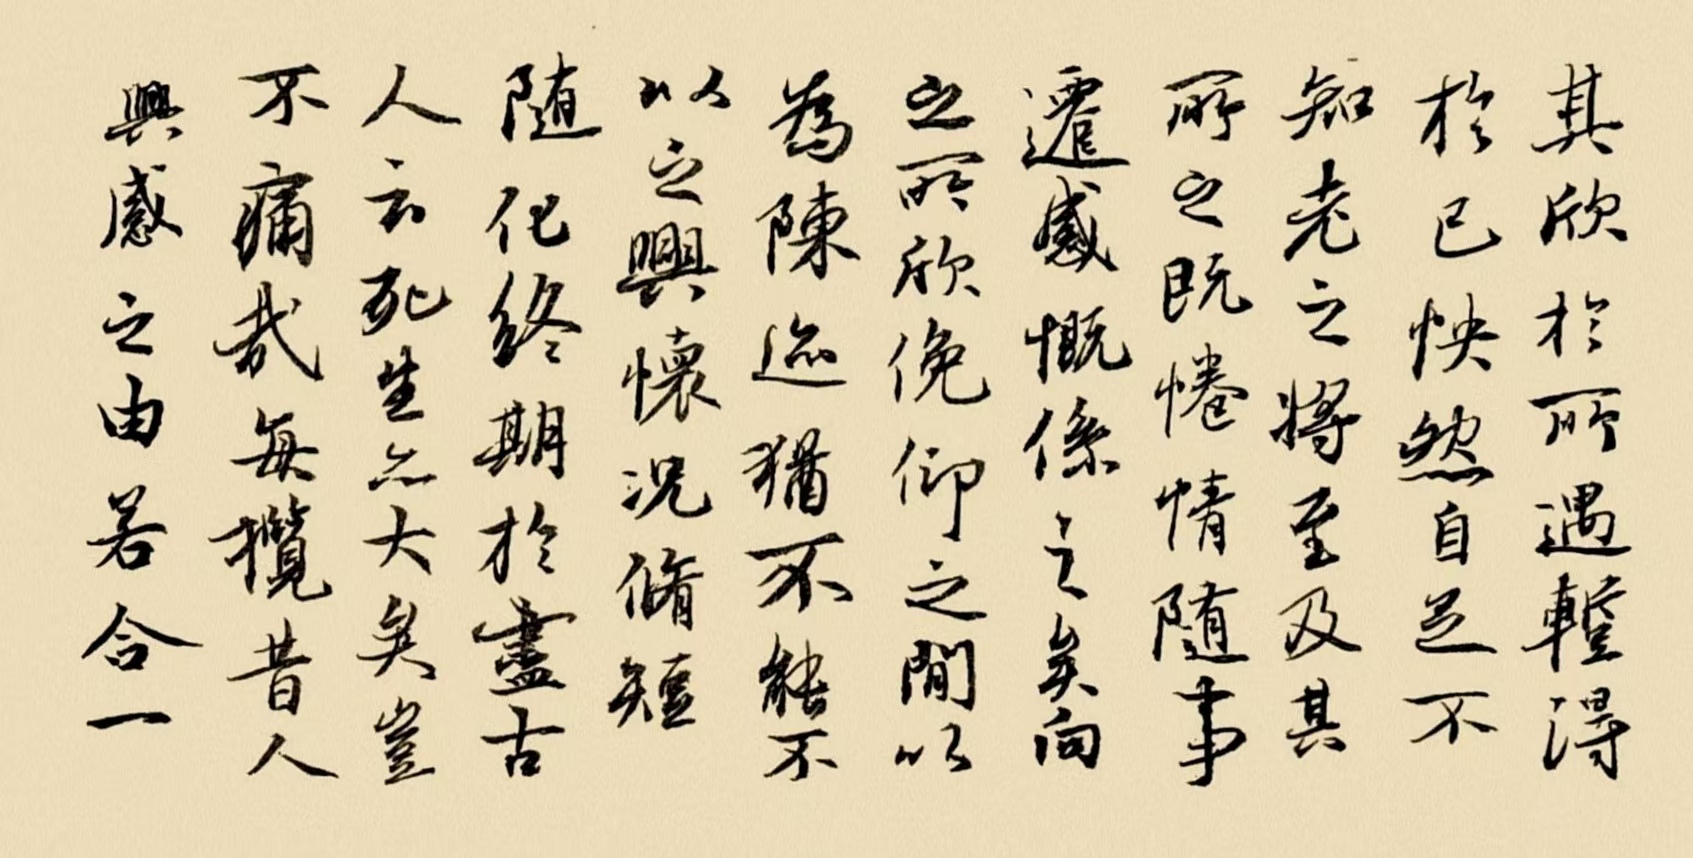 其欣於所遇暫得
於己怏然自足不
知老之將至及其
所之既惓情隨事
遷感慨係之矣向
之所欣俛仰之間以
為陳迹猶不能不
以之興懷況脩短
隨化終期於盡古
人云死生亦大矣豈
不痛哉每攬昔人
興感之由若合一